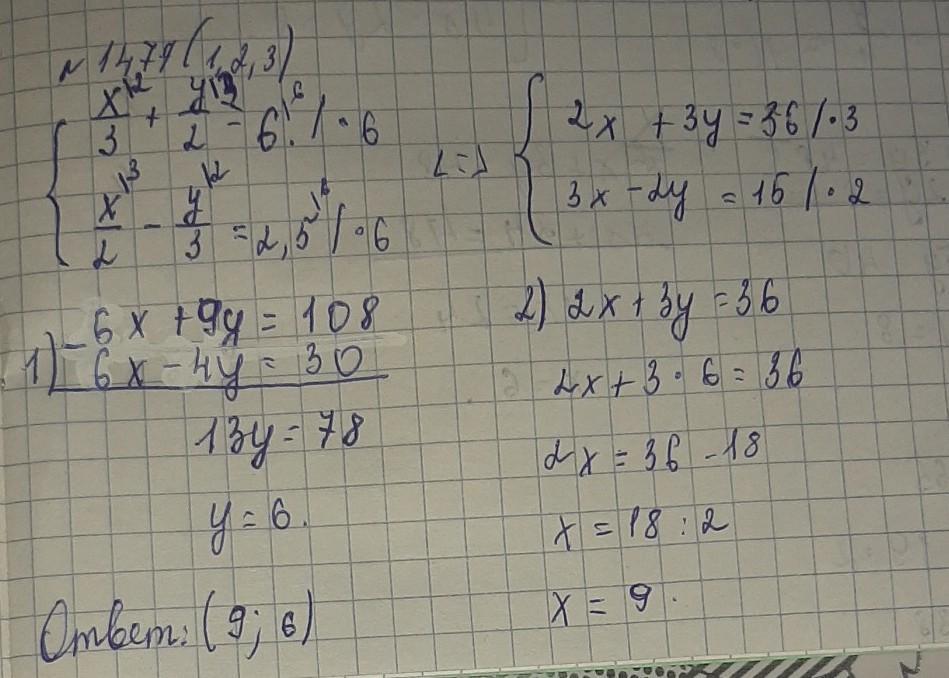 №1479(1,2,3)
{ x/3 |2 + y/2 |3 = 6 |6 /·6
{ x/2 |3 - y/3 |2 = 2,5 |6 /·6
<=>
{ 2x + 3y = 36 /·3
{ 3x - 2y = 15 /·2
1) - 6x + 9y = 108
6x - 4y = 30
13y = 78
y = 6.
2) 2x + 3y = 36
2x + 3·6 = 36
2x = 36 - 18
x = 18 : 2
x = 9.
Ответ: (9; 6)